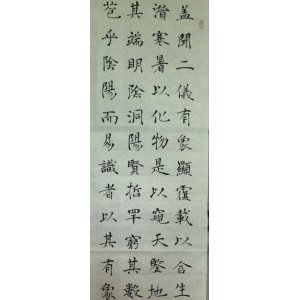 盖聞二儀有象顯覆載以含生
潛寒暑以化物是以窺天鑒地
其端明陰洞陽賢哲罕窮其數
苞乎陰陽而易識者以其有象